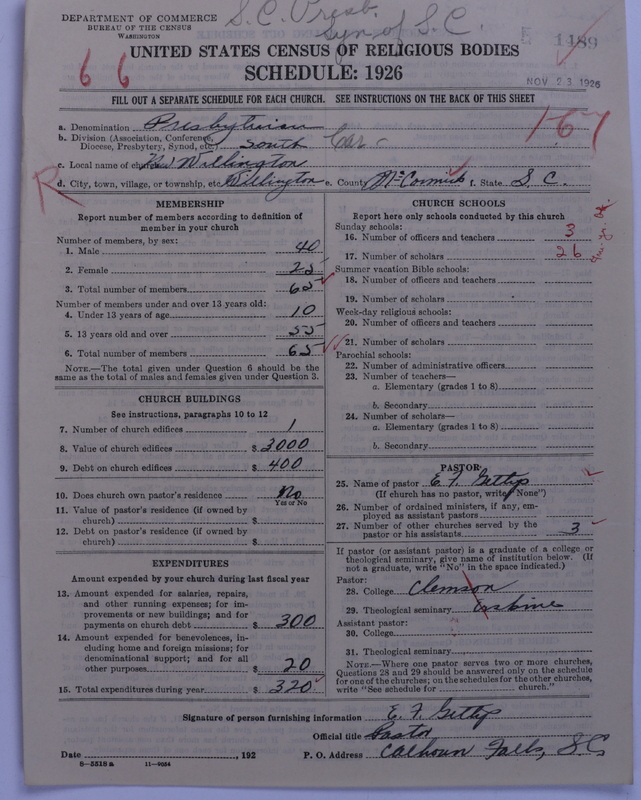 S.C. Presb.
Syn of S.C.
DEPARTMENT OF COMMERCE
BUREAU OF THE CENSUS
WASHINGTON
1489
UNITED STATES CENSUS OF RELIGIOUS BODIES
SCHEDULE: 1926
6 6
NOV 23 1926
FILL OUT A SEPARATE SCHEDULE FOR EACH CHURCH. SEE INSTRUCTIONS ON THE BACK OF THIS SHEET
167
a. Denomination Presbyterian
b. Division (Association, Conference, Diocese, Presbytery, Synod, etc.) South Car
c. Local name of church Willington
R
d. City, town, village, or township, etc. Willington e. County McCormick f. State S.C.
MEMBERSHIP
Report number of members according to definition of
member in your church
Number of members, by sex:
1. Male 40
2. Female 25
3. Total number of members 65
Number of members under and over 13 years old:
4. Under 13 years of age 10
5. 13 years old and over 55
6. Total number of members 65
NOTE.—The total given under Question 6 should be
same as the total of males and females given under Question 3.
CHURCH BUILDINGS
See instructions, paragraphs 10 to 12
7. Number of church edifices 1
8. Value of church edifices $ 3000
9. Debt on church edifices $ 400
10. Does church own pastor's residence No
Yes or No
11. Value of pastor's residence (if owned by
church) $
12. Debt on pastor's residence (if owned by
church) $
EXPENDITURES
Amount expended by your church during last fiscal year
13. Amount expended for salaries, repairs,
and other running expenses; for im-
provements or new buildings; and for
payments on church debt $ 300
14. Amount expended for benevolences, in-
cluding home and foreign missions; for
denominational support; and for all
other purposes $ 20
15. Total expenditures during year $ 320
CHURCH SCHOOLS
Report here only schools conducted by this church
Sunday schools:
16. Number of officers and teachers 3
17. Number of scholars 26
Summer vacation Bible schools:
18. Number of officers and teachers
19. Number of scholars
Week-day religious schools:
20. Number of officers and teachers
21. Number of scholars
Parochial schools:
22. Number of administrative officers
23. Number of teachers—
a. Elementary (grades 1 to 8)
b. Secondary
24. Number of scholars—
a. Elementary (grades 1 to 8)
b. Secondary
PASTOR
25. Name of pastor E. F. Gettys
(If church has no pastor, write "None")
26. Number of ordained ministers, if any, em-
ployed as assistant pastors
27. Number of other churches served by the
pastor or his assistants 3
If pastor (or assistant pastor) is a graduate of a college or
theological seminary, give name of institution below. (If
not a graduate, write "No" in the space indicated.)
Pastor:
28. College Clemson
29. Theological seminary Erskine
Assistant pastor:
30. College
31. Theological seminary
NOTE.—Where one pastor serves two or more churches,
Questions 28 and 29 should be answered only on the schedule
for one of the churches; on the schedules for the other churches,
write "See schedule for church."
Signature of person furnishing information E. F. Gettys
Official title Pastor
Date , 192 P. O. Address Calhoun Falls, S.C
8-5518a 11-9054